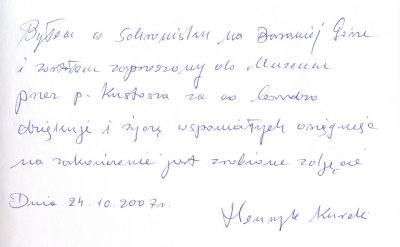 Byłem w Schronisku na Baraniej Górze
i zostałem zaproszony do Muzeum
przez p. Kustosza za co bardzo
dziękuję i życzę wspaniałych osiągnięć
na zakończenie jest zrobione zdjęcie
Dnia 24.10.2007r.
Henryk